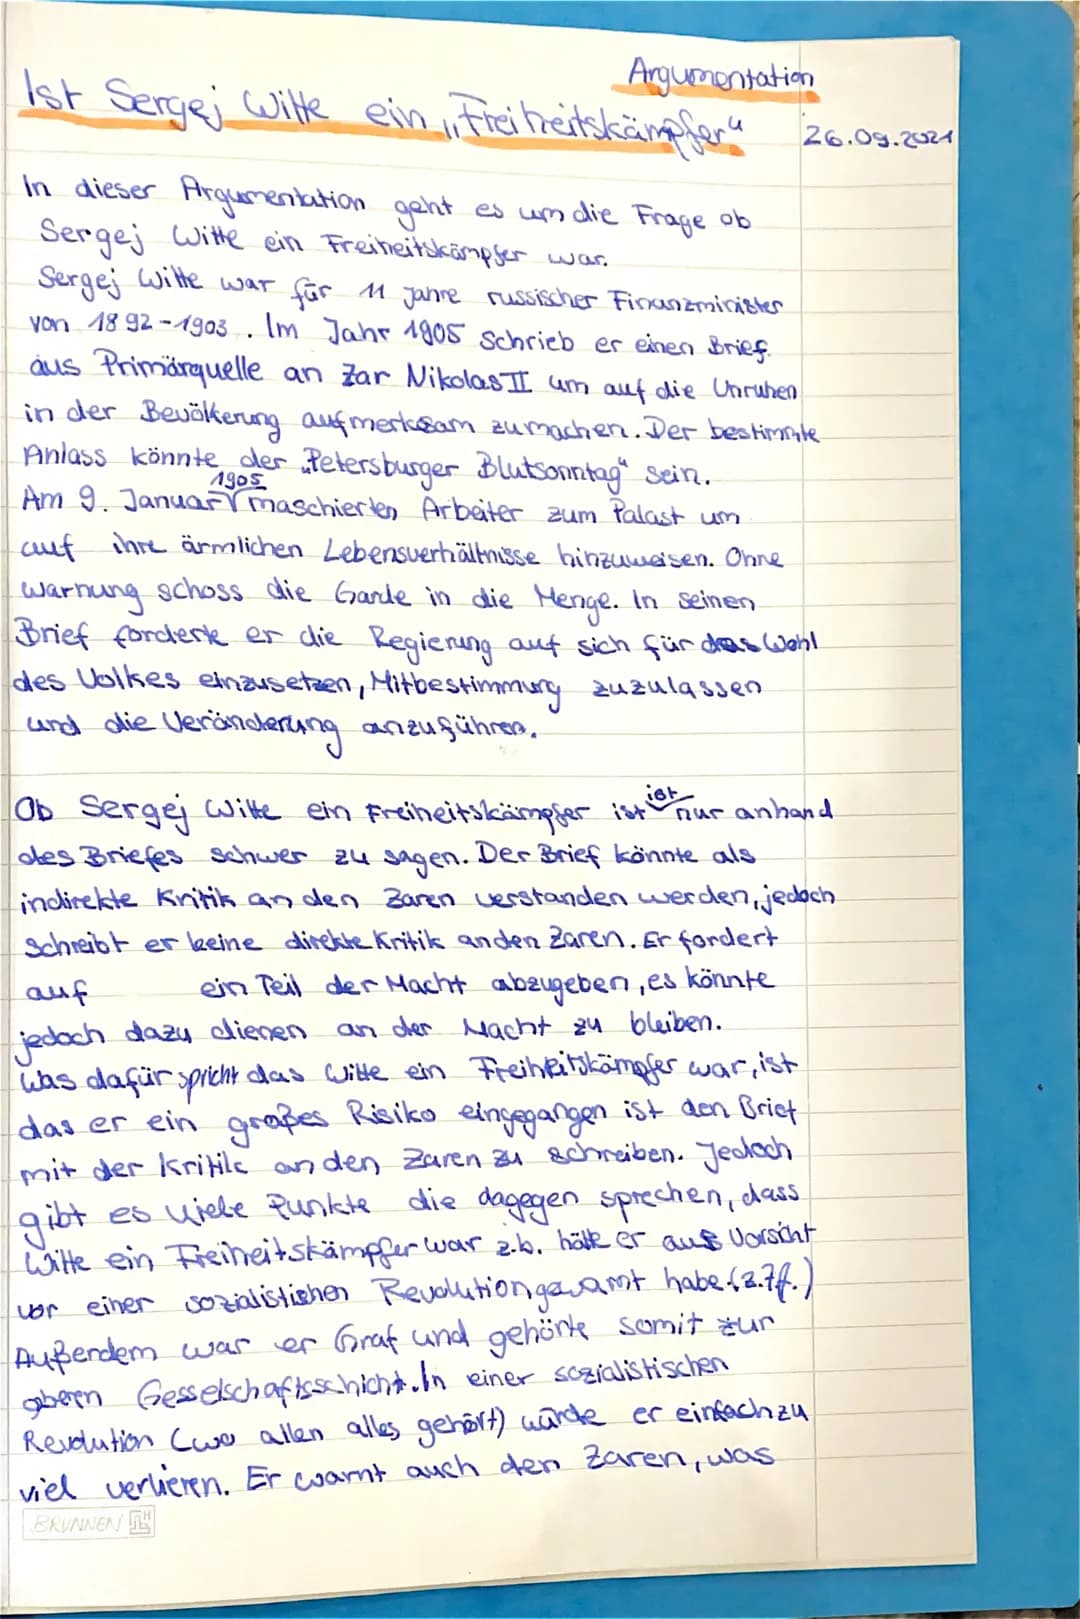 Argumentation
Ist Sergej Witte ein „Freiheitskämpfer“
26.09.2021
In dieser Argumentation geht es um die Frage ob
Sergej Witte ein Freiheitskämpfer war.
Sergej Witte war für 11 Jahre russischer Finanzminister
von 1892-1903. Im Jahr 1905 schrieb er einen Brief
aus Primärquelle an Zar Nikolas II um auf die Unruhen
in der Bevölkerung aufmerksam zumachen. Der bestimmte
Anlass könnte der „Petersburger Blutsonntag“ sein.
1905
Am 9. Januar √ maschierten Arbeiter zum Palast um
auf ihre ärmlichen Lebensverhältnisse hinzuweisen. Ohne
Warnung schoss die Garde in die Menge. In seinen
Brief forderte er die Regierung auf sich für das Wohl
des Volkes einzusetzen, Mitbestimmung zuzulassen
und die Veränderung anzuführen.
Ob Sergej Witte ein Freiheitskämpfer ist ist nur anhand
des Briefes schwer zu sagen. Der Brief könnte als
indirekte Kritik an den Zaren verstanden werden, jedoch
schreibt er keine direkte Kritik an den Zaren. Er fordert
auf ein Teil der Macht abzugeben, es könnte
jedoch dazu dienen an der Macht zu bleiben.
Was dafür spricht das Witte ein Freiheitskämpfer war, ist
das er ein großes Risiko eingegangen ist den Brief
mit der Kritik an den Zaren zu schreiben. Jedoch
gibt es viele Punkte die dagegen sprechen, dass
Witte ein Freiheitskämpfer war z.b. hätte er aus Vorsicht
vor einer sozialistischen Revolution gewarnt habe. (z.7f.)
Außendem war er Graf und gehörte somit zur
oberen Gesselschaftsschicht. In einer sozialistischen
Revolution (wo allen alles gehört) würde er einfach zu
viel verlieren. Er warnt auch den Zaren, was
BRUNNEN